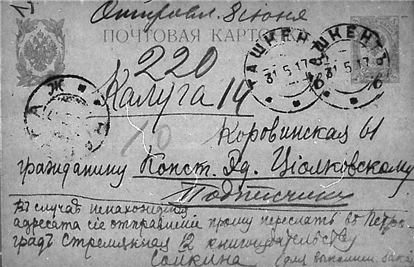 Отправл. 8 июня
ПОЧТОВАЯ КАРТО
ТАШКЕНТЪ
31 5 17
ТАШКЕНТЪ
31.5.17
220
Калуга 14
10
Коровинская 61
гражданину Конст. Эд. Ціолковскому
Подписчик
Въ случаѣ ненахожденія
адресата сіе отправленіе прошу переслать въ Петро
градъ Стремянная 12 книгоиздательству
Сойкина (для выполнен. зака